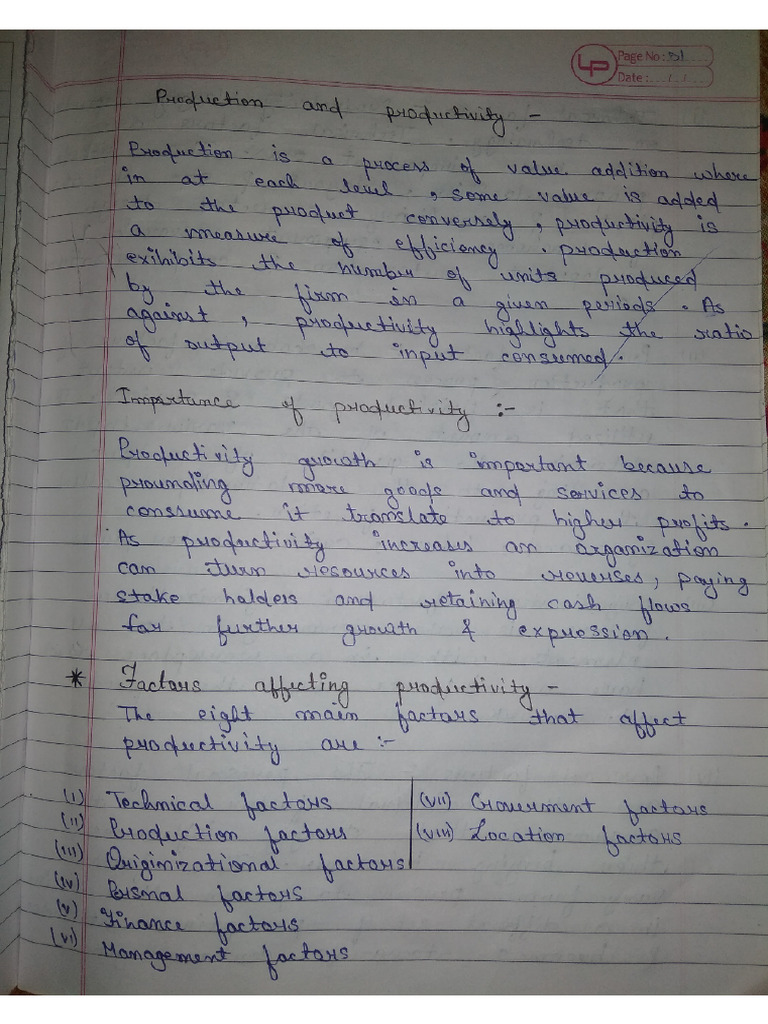 LP
Page No: 31
Date: / /
Production and productivity -
Production is a process of value addition where
in at each level, some value is added
to the product conversely, productivity is
a measure of efficiency . production
exihibits the number of units produced
by the firm in a given periods. As
against, productivity highlights the ratio
of output to input consumed.
Importance of productivity :-
Productivity growth is important because
prounding more goods and services to
conssume it translate to higher profits.
As productivity increases an organization
can turn resources into reverses, paying
stake holders and retaining cash flows
for further growth & expression.
* Factors affecting productivity -
The eight main factors that affect
productivity are :-
(i) Technical factors
(ii) Production factors
(iii) Origimizational factors
(iv) Persnal factors
(v) Finance factors
(vi) Management factors
(vii) Goverment factors
(viii) Location factors